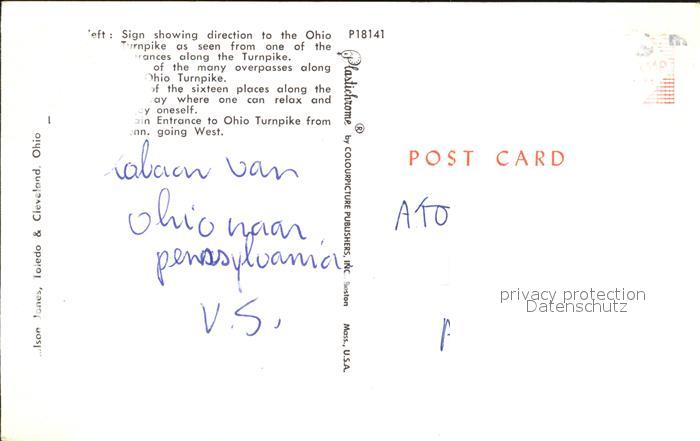 eft: Sign showing direction to the Ohio
Turnpike as seen from one of the
rances along the Turnpike.
of the many overpasses along
Ohio Turnpike.
of the sixteen places along the
ay where one can relax and
oy oneself.
ain Entrance to Ohio Turnpike from
enn. going West.
P18141
Plastichrome ®
by COLOURPICTURE PUBLISHERS, INC. Boston Mass., U.S.A.
lson Jones, Toledo & Cleveland, Ohio
POST CARD
van
Ohio naar
pennsylvania
V.S.
ATO
privacy protection
Datenschutz